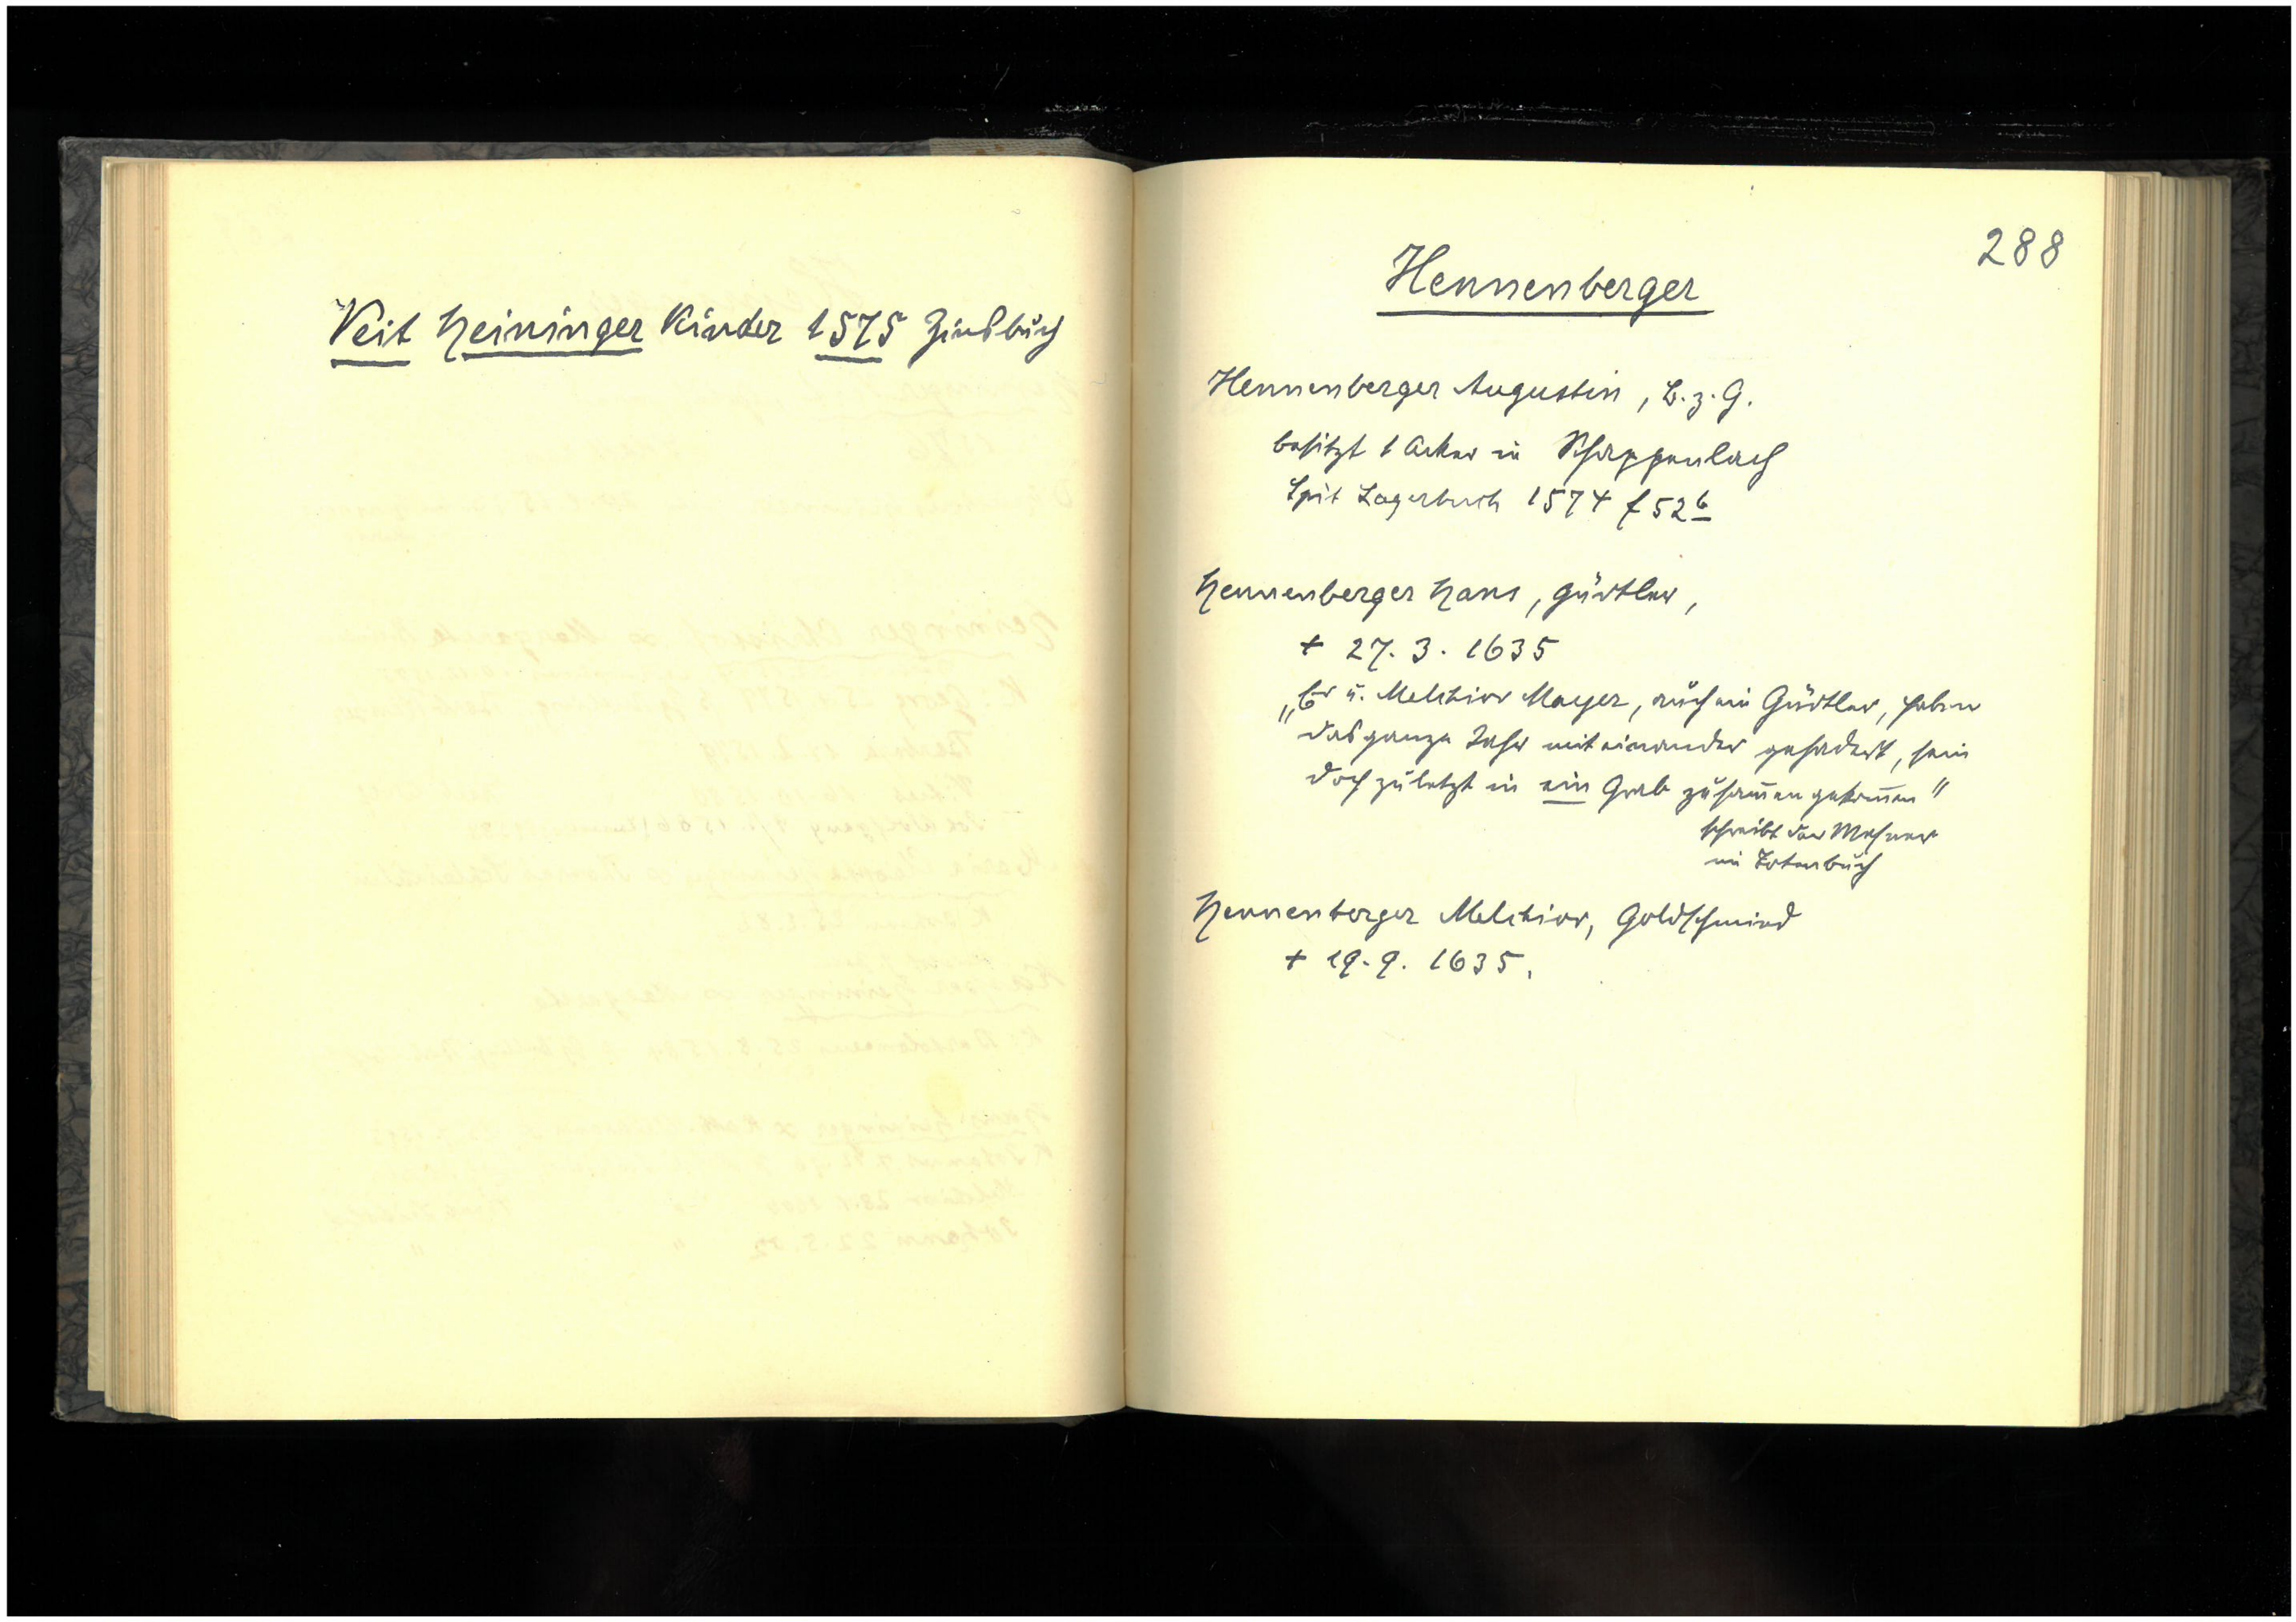 Veit Heininger Kinder 1575 Zinsbuch
288
Hennenberger
Hennenberger Augustin, B. z. G.
besitzt 1 Acker in Schappenlach
Spit Lagerbuch 1574 f 52b
Hennenberger Hans, Gürtler,
+ 27. 3. 1635
„Er u. Melchior Mayer, auch ein Gürtler, haben
das ganze Jahr mit einander gehadert, sein
doch zuletzt in ein Grab zusam̅en gekom̅en"
schreibt der Mesner
im Totenbuch
Hennenberger Melchior, Goldschmied
+ 19. 9. 1635.